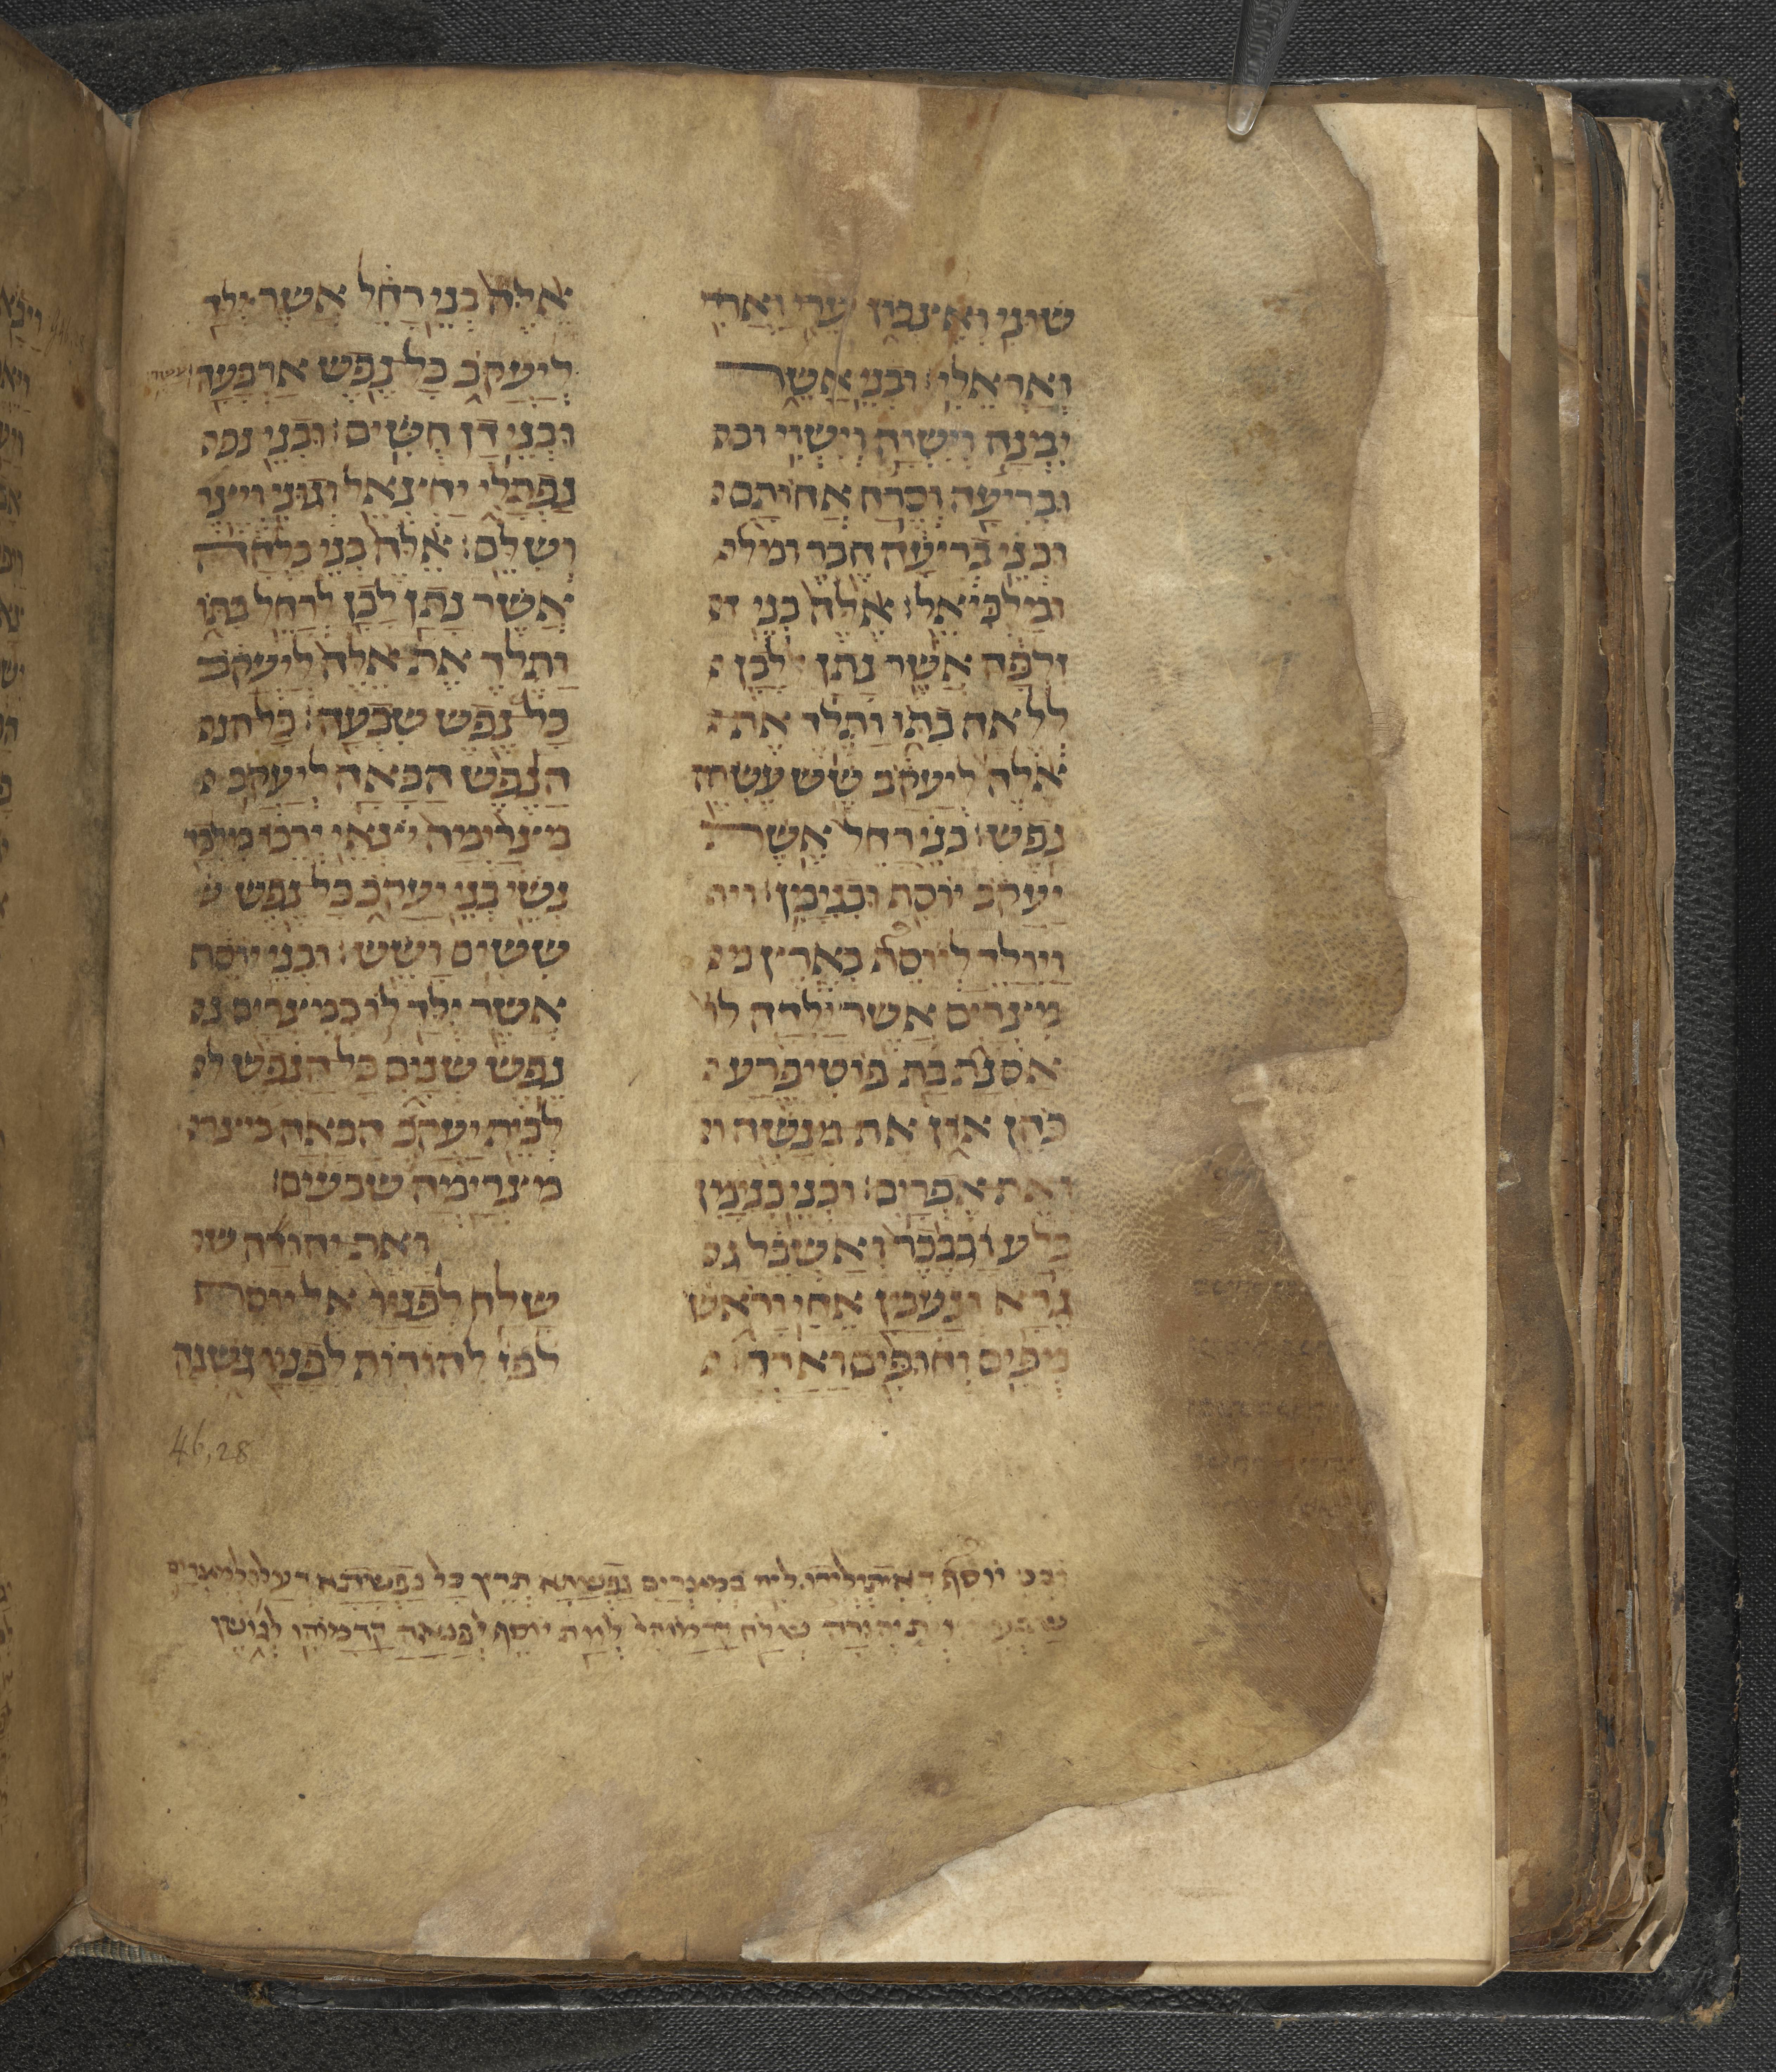 שוני ואצבון ערי וארו
ואראלי׃ ובני אשר
ימנה וישוה וישוי וב
ובריעה וסרח אחותם
ובני בריעה חבר ומל
ומלכיאל׃ אלה בני ז
זלפה אשר נתן לבן
ללאה בתו ותלד את
אלה ליעקב שש עשרה
נפש׃ בני רחל אשר
יעקב יוסף ובנימן׃ וי
ויולד ליוסף בארץ מ
מצרים אשר ילדה לו
אסנת בת פוטיפרע
כהן און את מנשה ו
ואת אפרים׃ ובני בנימן
בלע ובכר ואשבל ג
גרא ונעמן אחי וראש
מפים וחופים וארד
אלה בני רחל אשר ילד
ליעקב כל נפש ארבעה עשר
ובני דן חשים׃ ובני נפ
נפתלי יחצאל וגוני ויצר
ושלם׃ אלה בני בלהה
אשר נתן לבן לרחל בתו
ותלד את אלה ליעקב
כל נפש שבעה׃ כל הנפ
הנפש הבאה ליעקב
מצרימה יצאי ירכו מלבד
נשי בני יעקב כל נפש ש
ששים ושש׃ ובני יוסף
אשר ילד לו במצרים נפ
נפש שנים כל הנפש ל
לבית יעקב הבאה מצר
מצרימה שבעים׃
ואת יהודה ש
שלח לפניו אל יוסף
לפ להורות לפניו גשנה
46,28
ובני יוסף דאיתילידו ליה במצרים נפשתא תרין כל נפשתא דעלו למצרים
יהודה שלח קדמוהי לות יוסף לפנאה קדמוהי לגושן